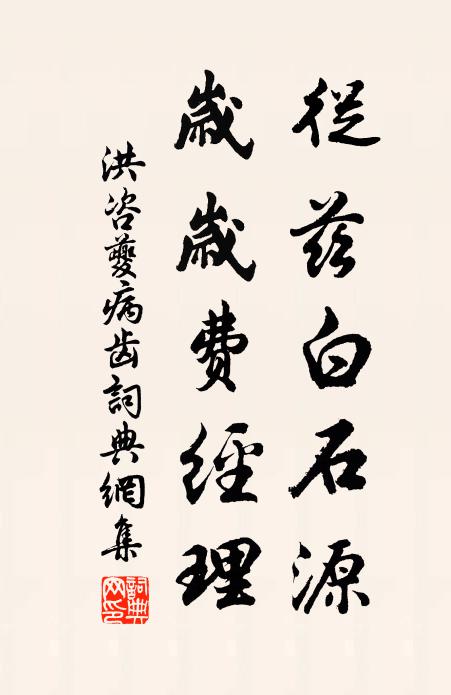 從茲白石源
歲歲費經理
洪咨夔病齒詞典網集
詞典网印